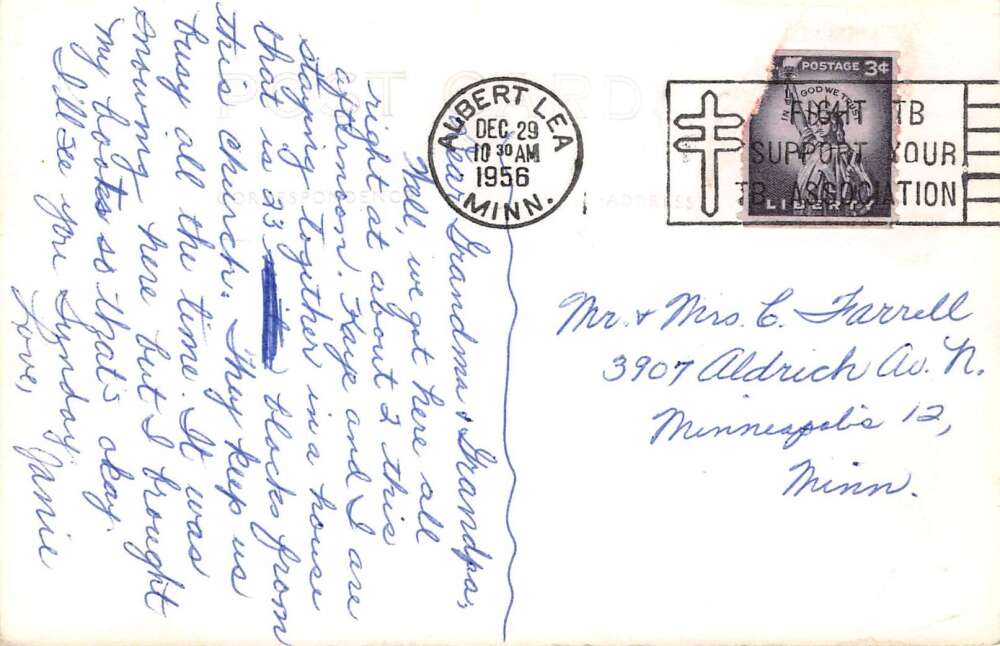 POST CARD
CORRESPONDENCE
ADDRESS
Dear Grandma & Grandpa,
Well, we got here all
right at about 2 this
afternoon. Kaye and I are
staying together in a house
that is 33 blocks from
this church. They keep us
busy all the time. It was
snowing here but I brought
my boots so that's okay.
I'll see you Synday.
Love,
Janie
ALBERT LEA
DEC 29
10 30 AM
1956
MINN.
POSTAGE 3¢
IN GOD WE TRUST
LIBERTY
FIGHT TB
SUPPORT YOUR
TB ASSOCIATION
Mr. & Mrs. C. Farrell
3907 Aldrich Av. N.
Minneapolis 12,
Minn.